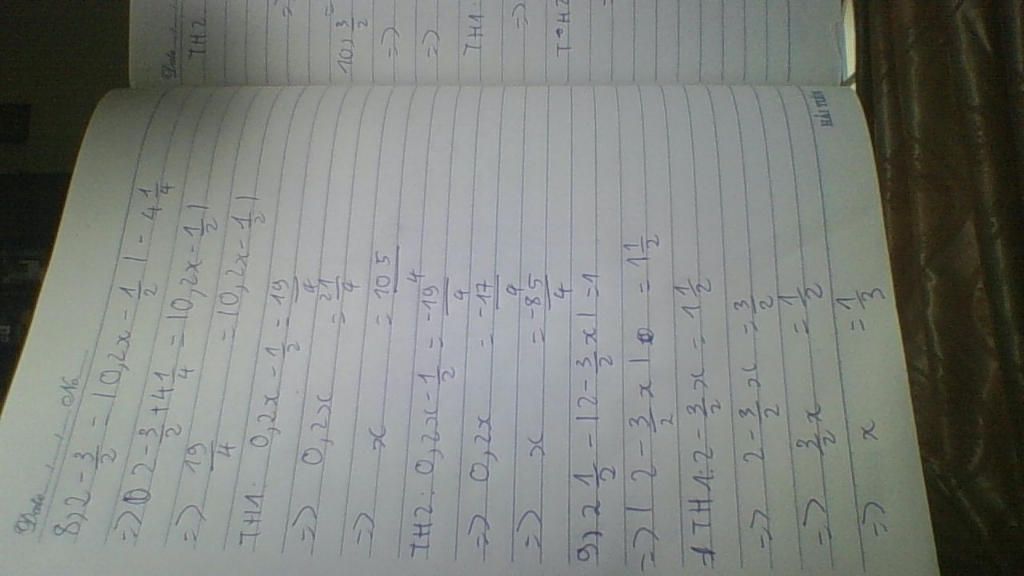 Date . . . , . . . , . . . No
8, 2 - 3/2 = |0,2x - 1/2| - 4 1/4
=> 2 - 3/2 + 4 1/4 = |0,2x - 1/2|
=> 19/4 = |0,2x - 1/2|
TH1: 0,2x - 1/2 = 19/4
=> 0,2x = 21/4
=> x = 105/4
TH2: 0,2x - 1/2 = -19/4
=> 0,2x = -17/4
=> x = -85/4
9, 2 1/2 - |2 - 3/2 x| = 1
=> |2 - 3/2 x| = 1 1/2
TH1: 2 - 3/2 x = 1 1/2
=> 2 - 3/2 x = 3/2
=> 3/2 x = 1/2
=> x = 1/3
HẢI TIẾN
Date
TH2
=>
|0, 3/2 =
=>
=>
TH1:
=>
TH2